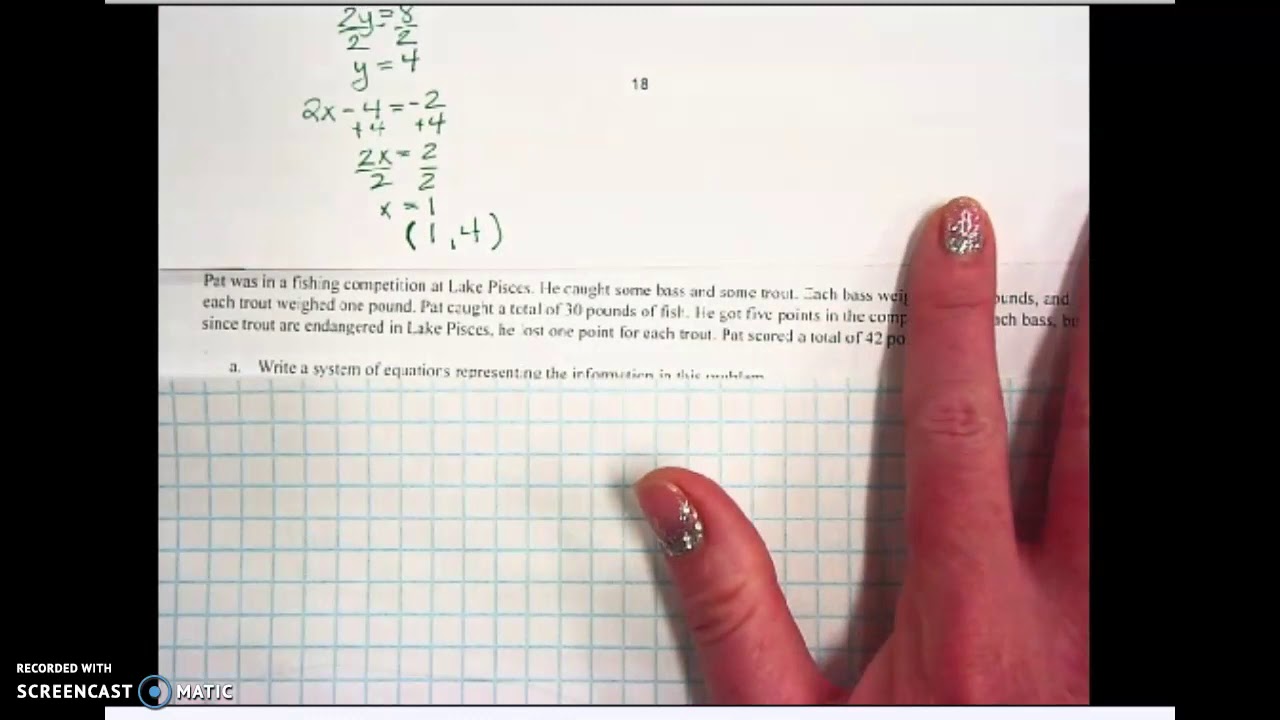 2y = 8
2 2
y = 4
2x - 4 = -2
+4 +4
2x = 2
2 2
x = 1
(1, 4)
18
Pat was in a fishing competition at Lake Pisces. He caught some bass and some trout. Each bass ounds, and
each trout weighed one pound. Pat caught a total of 30 pounds of fish. He got five points in the comp ach bass, bu
since trout are endangered in Lake Pisces, he lost one point for each trout. Pat scored a total of 42 po
a. Write a system of equations representing the information in this problem.
RECORDED WITH
SCREENCAST MATIC